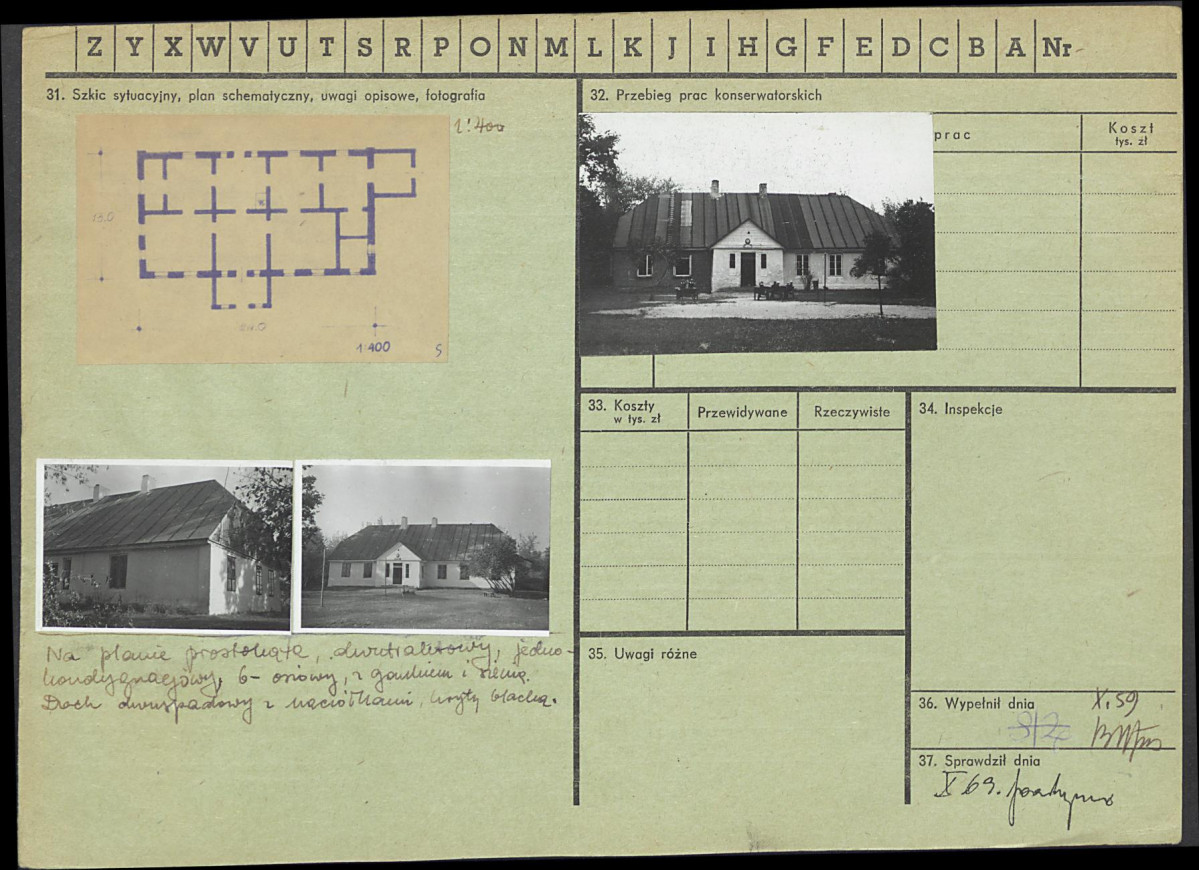 Z Y X W V U T S R P O N M L K J I H G F E D C B A Nr
31. Szkic sytuacyjny, plan schematyczny, uwagi opisowe, fotografia
1:400
13.0
1:400
S
Na planie prostokąta, dwutraktowy, jedno-
kondygnacjowy, 6-osiowy, z gankiem i sienią.
Dach dwuspadowy z naciółkami, kryty blachą.
32. Przebieg prac konserwatorskich
prac
Koszt
tys. zł
33. Koszty
w tys. zł
Przewidywane
Rzeczywiste
34. Inspekcje
35. Uwagi różne
36. Wypełnił dnia
X.59
37. Sprawdził dnia
X 69.